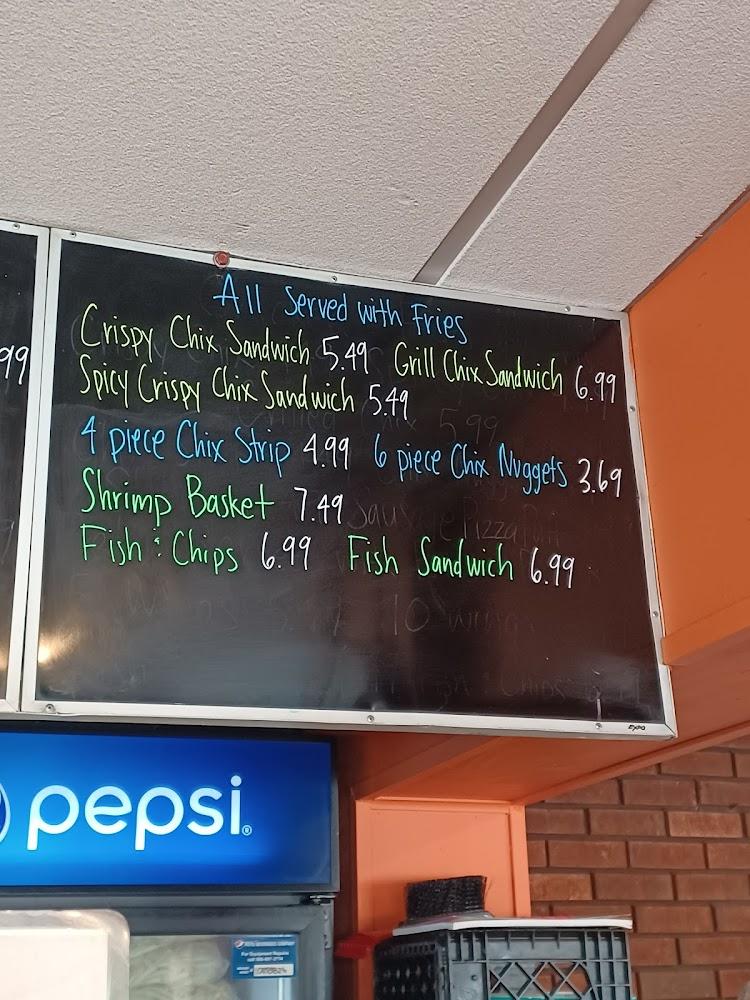 All Served with Fries
Crispy Chix Sandwich 5.49 Grill Chix Sandwich 6.99
Spicy Crispy Chix Sandwich 5.49
4 piece Chix Strip 4.99 6 piece Chix Nuggets 3.69
Shrimp Basket 7.49
Fish & Chips 6.99 Fish Sandwich 6.99
99
5.99
Pizza
10 wings
Chips
EXPO
pepsi®
For Equipment Repairs